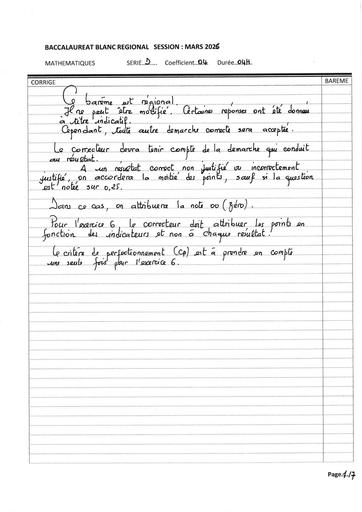 BACCALAUREAT BLANC REGIONAL SESSION : MARS 2026
MATHEMATIQUES SERIE D Coefficient.04 Durée.04H
CORRIGE BAREME
Ce barème est régional.
Il ne peut être modifié. Certaines réponses ont été données
à titre indicatif.
Cependant, toute autre demarche correcte sera acceptée.
Le correcteur devra tenir compte de la demarche qui conduit
au résultat.
A un résultat correct non justifié ou incorrectement
justifié, on accordera la moitié des points, sauf si la question
est notée sur 0,25.
Dans ce cas, on attribuera la note 00 (Zéro).
Pour l'exercice 6, le correcteur doit attribuer les points en
fonction des indicateurs et non à chaque résultat.
Le critère de perfectionnement (Cp) est à prendre en compte
une seule fois pour l'exercice 6.
Page.1/7